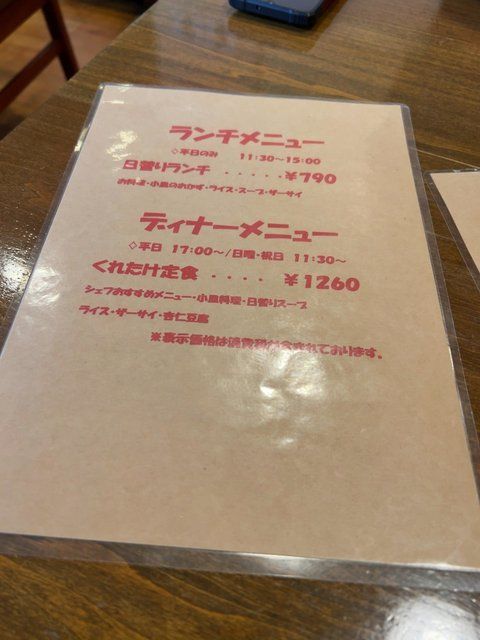 ランチメニュー
◇平日のみ 11:30～15:00
日替りランチ ・・・・・ ¥790
お料理・小皿のおかず・ライス・スープ・ザーサイ
ディナーメニュー
◇平日 17:00～/日曜・祝日 11:30～
くれたけ定食 ・・・・ ¥1260
シェフおすすめメニュー・小皿料理・日替りスープ
ライス・ザーサイ・杏仁豆腐
※表示価格は消費税が含まれております。